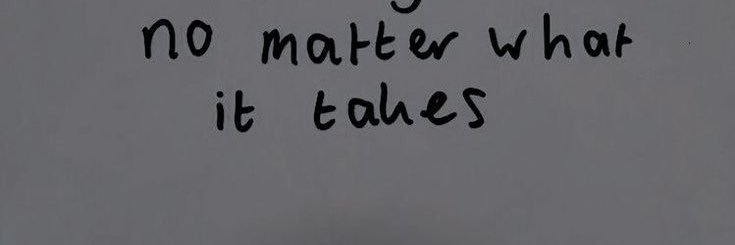 no matter what
it takes